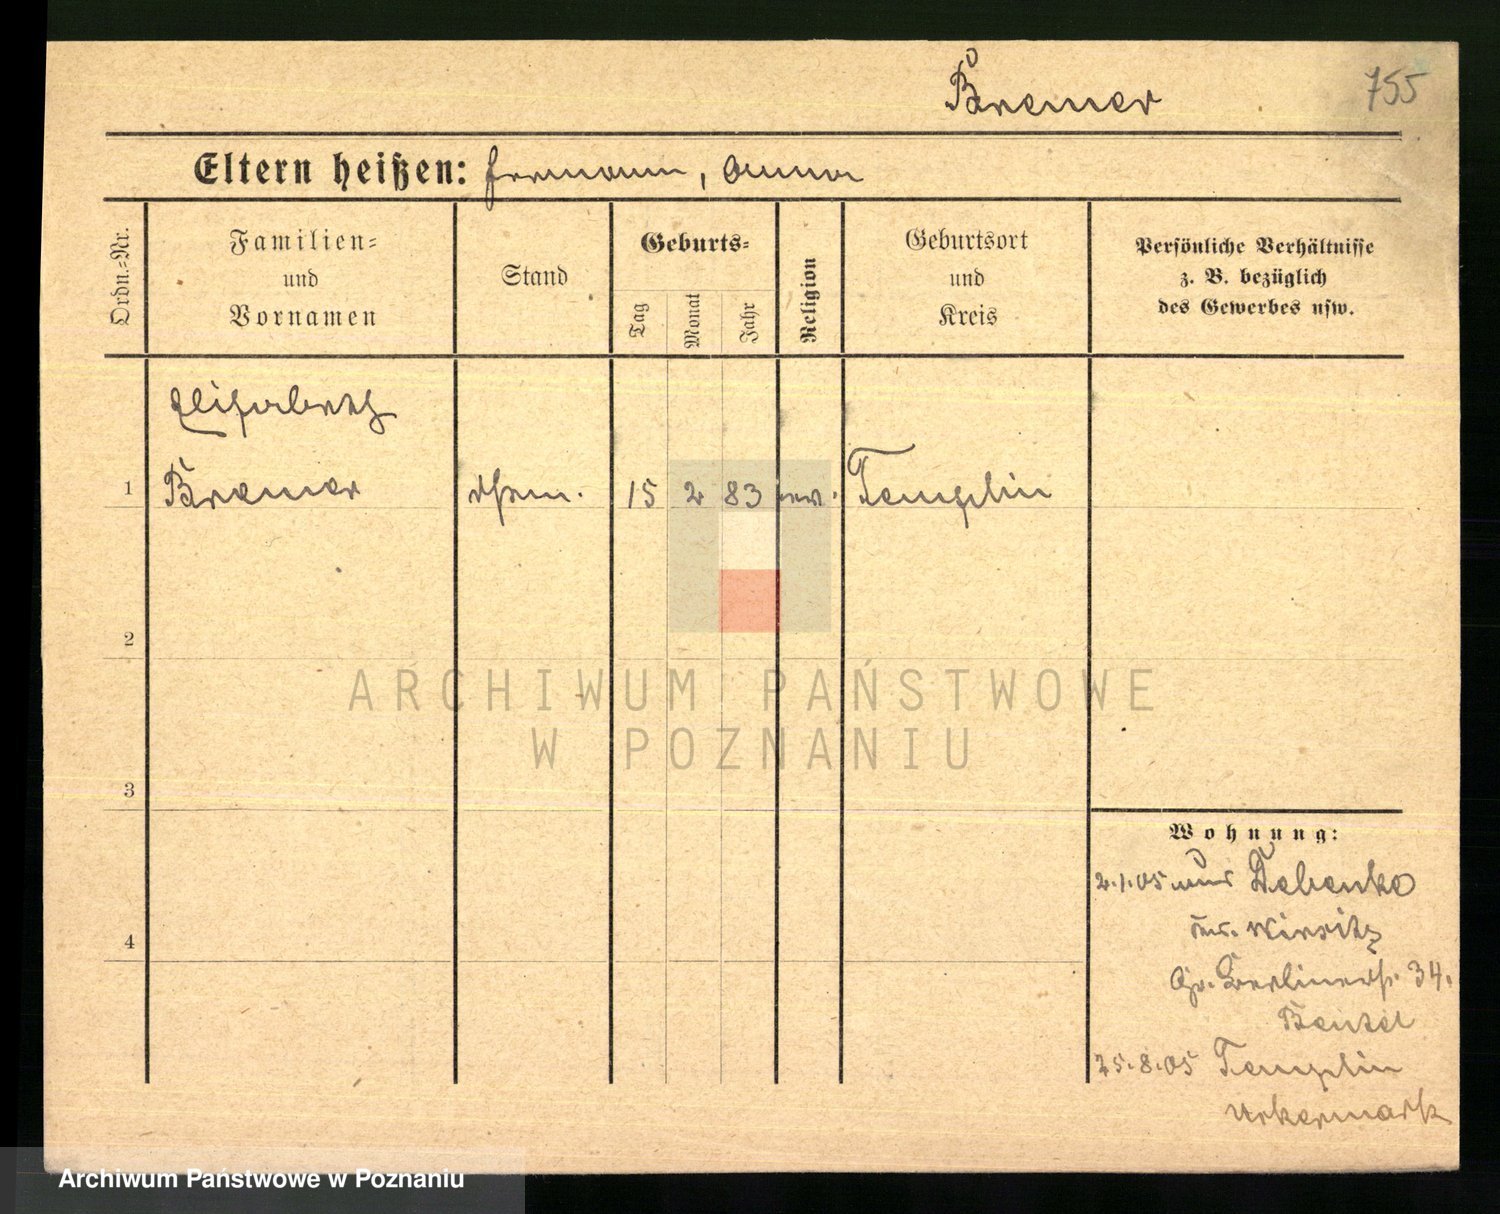 Bremer
755
Eltern heißen: Hermann, Anna
Ordn.-Nr.
Familien-
und
Vornamen
Stand
Geburts-
Tag
Monat
Jahr
Religion
Geburtsort
und
Kreis
Persönliche Verhältnisse
z. B. bezüglich
des Gewerbes usw.
Elisabeth
1 Bremer 15 2 83 ev. Templin
2
3
4
Wohnung:
2.1.05 aus Debenke
Kr. Wirsitz
Gr. Berlinerstr. 34.
Bentel
25.8.05 Templin
Uckermark
ARCHIWUM PAŃSTWOWE
W POZNANIU
Archiwum Państwowe w Poznaniu